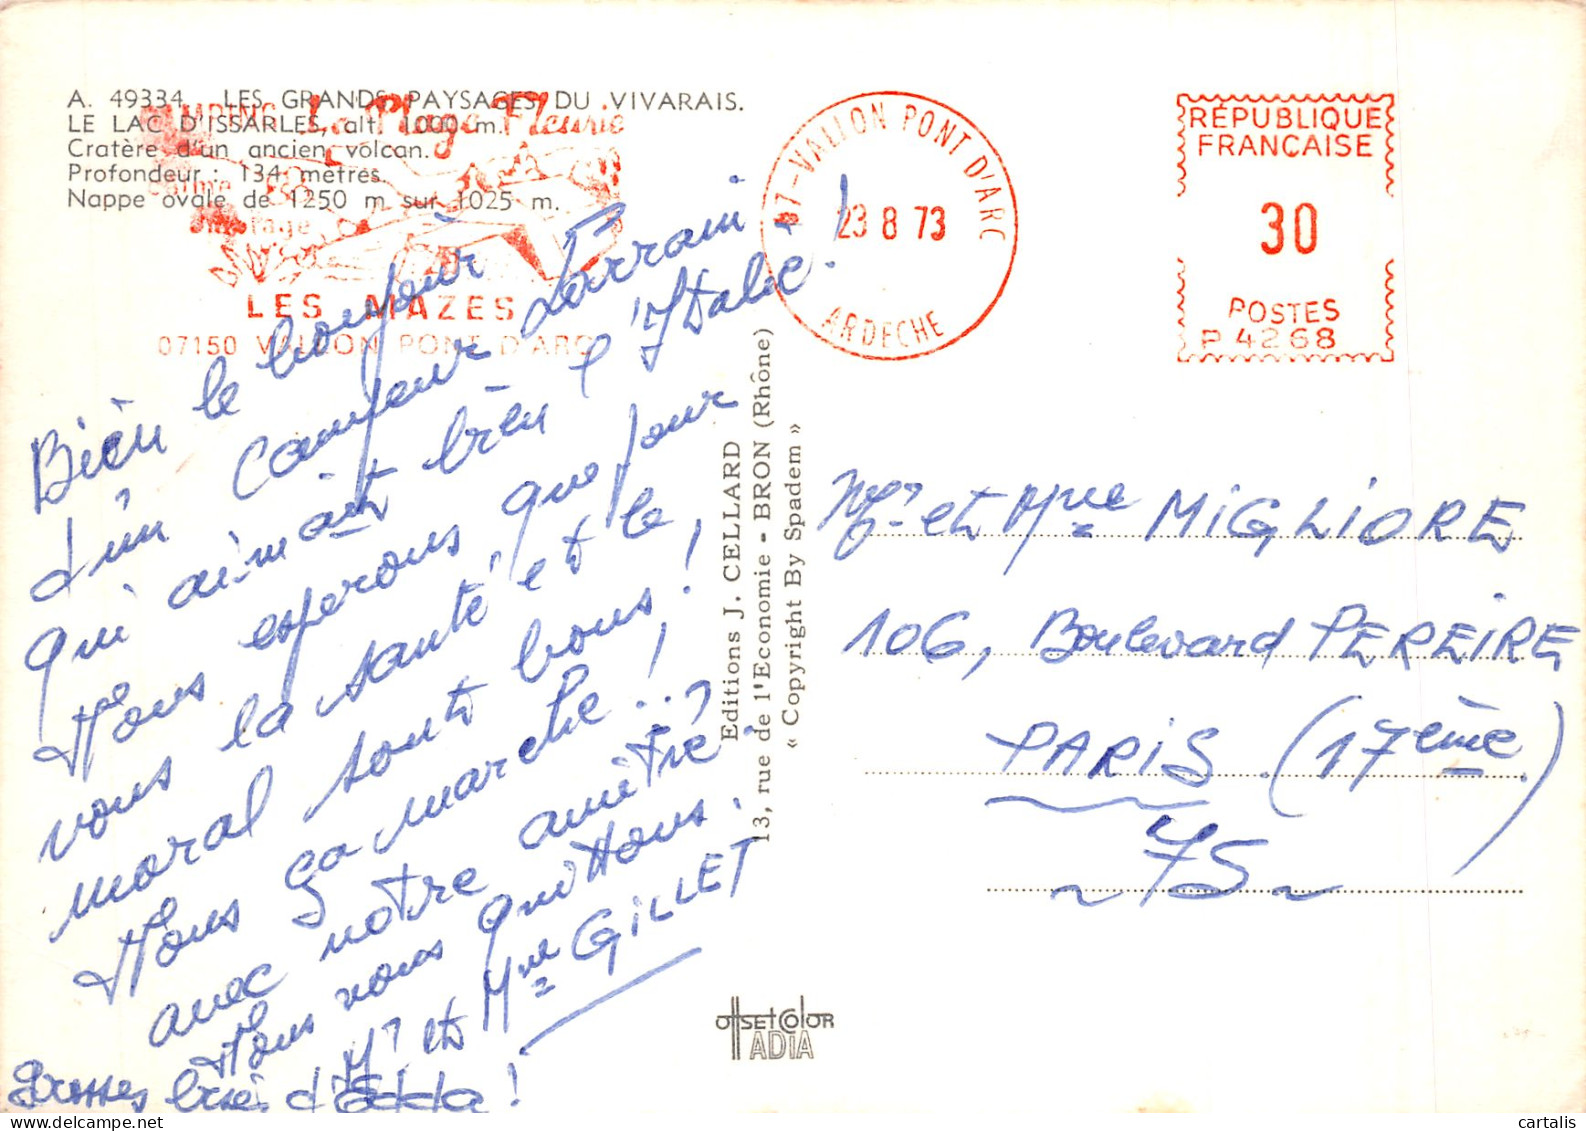 A. 49334 LES GRANDS PAYSAGES DU VIVARAIS.
LE LAC D'ISSARLES, alt. 1000 m.
Cratère d'un ancien volcan.
Profondeur : 134 mètres.
Nappe ovale de 1250 m sur 1025 m.
CAMPING La Plage Fleurie
LES MAZES
07150 VALLON PONT D'ARC
07-VALLON PONT D'ARC
23 8 73
ARDECHE
RÉPUBLIQUE
FRANCAISE
30
POSTES
P 4268
Bien le bonjour
d'un campeur Lorrain
qui aimait bien l'Italie !
Nous espérons que pour
vous la santé et le
moral sont bons !
Nous ça marche !
avec notre amitié
Nous vous quittons.
Mr et Mme GILLET
Grosses bises d'Edda !
Editions J. CELLARD
13, rue de l'Economie - BRON (Rhône)
« Copyright By Spadem »
Mr et Mme MIGLIORE
106, Boulevard PEREIRE
PARIS (17ème)
~ 75 ~
OFFSET COLOR
IADIA
cartalis